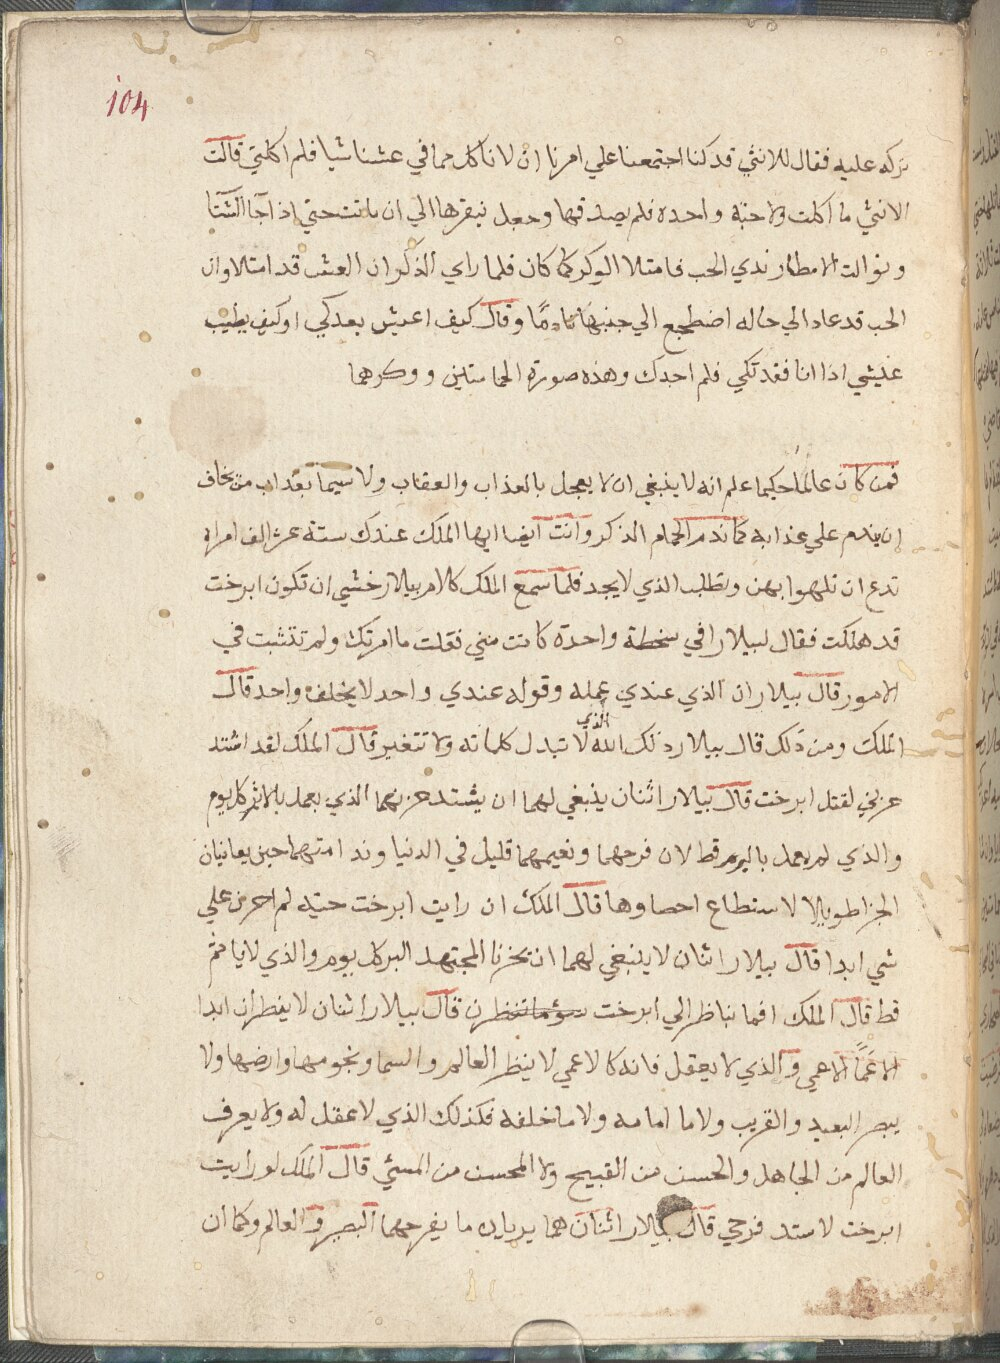 104
تركه عليه فقال للانثي قد كنا اجتمعنا علي امرنا ان لا ناكل مما في عشنا شيا فلم اكلتي قالت
الانثي ما اكلت ولا حبة واحده فلم يصدقها وجعل ينقرها الي ان ماتت حتي اذا جا الشتا
وتوالت الامطار ندي الحب فامتلا الوكر كما كان فلما راي الذكر ان العش قد امتلا وان
الحب قد عاد الي حاله اضطجع الي جنبها نادمًا وقال كيف اعيش بعدكي او كيف يطيب
عيشي اذا انا فقدتكي فلم اجدك وهذه صورة الحمامتين ووكرهما
فمن كان عالمًا حكيما علم انه لا ينبغي ان لا يعجل بالعذاب والعقاب ولا سيما بعذاب من يخاف
ان يندم علي عذابه كما ندم الحمام الذكر وانت ايضا ايها الملك عندك ستة عشر الف امراه
تدع ان تلهوا بهن وتطلب الذي لا يجد فلما سمع الملك كلام بيلار خشي ان تكون ابرخت
قد هلكت فقال لبيلار افي سخطة واحدة كانت مني نقلت ما امرتك ولم تتثبت في
الامور قال بيلار ان الذي عندي عمله وقوله عندي واحد لا يخلفه واحد قال
الملك ومن ذلك قال بيلار ذلك الله الذي لا تبدل كلماته ولا تتغير قال الملك لقد اشتد
حزني لقتل ابرخت قال بيلار اثنان ينبغي لهما ان يشتد حزنهما الذي يعمل بالاثم كل يوم
والذي لم يعمل بالبر قط لان فرحهما ونعيمهما قليل في الدنيا وندامتهما حين يعاينان
الجزا طويلا لا ستطاع احصاوها قال الملك ان رايت ابرخت حيّه لم احزن علي
شي ابدا قال بيلار اثنان لا ينبغي لهما ان يحزنا المجتهد البر كل يوم والذي لا ياثم
قط قال الملك افما بناظر الي ابرخت قال بيلار اثنان لا ينظران ابدا
الاعمي والذي لا يعقل فانه كالاعمي لا ينظر العالم والسما ونجومها وارضها ولا
يبصر البعيد والقريب ولا ما امامه ولا ما خلفه فكذلك الذي لا عقل له ولا يعرف
العالم من الجاهل والحسن من القبيح ولا المحسن من المسئي قال الملك لو رايت
ابرخت لاشتد فرحي قال بيلار اثنان هما يريان ما يفرحهما البصير والعالم وكما ان